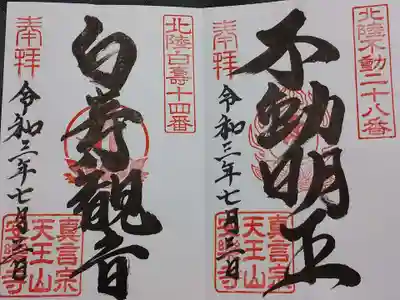 北陸不動二十八番
不動明王
奉拝
令和三年七月三日
真言宗
天王山
安樂寺
北陸白壽十四番
白寿観音
奉拝
令和三年七月三日
真言宗
天王山
安樂寺